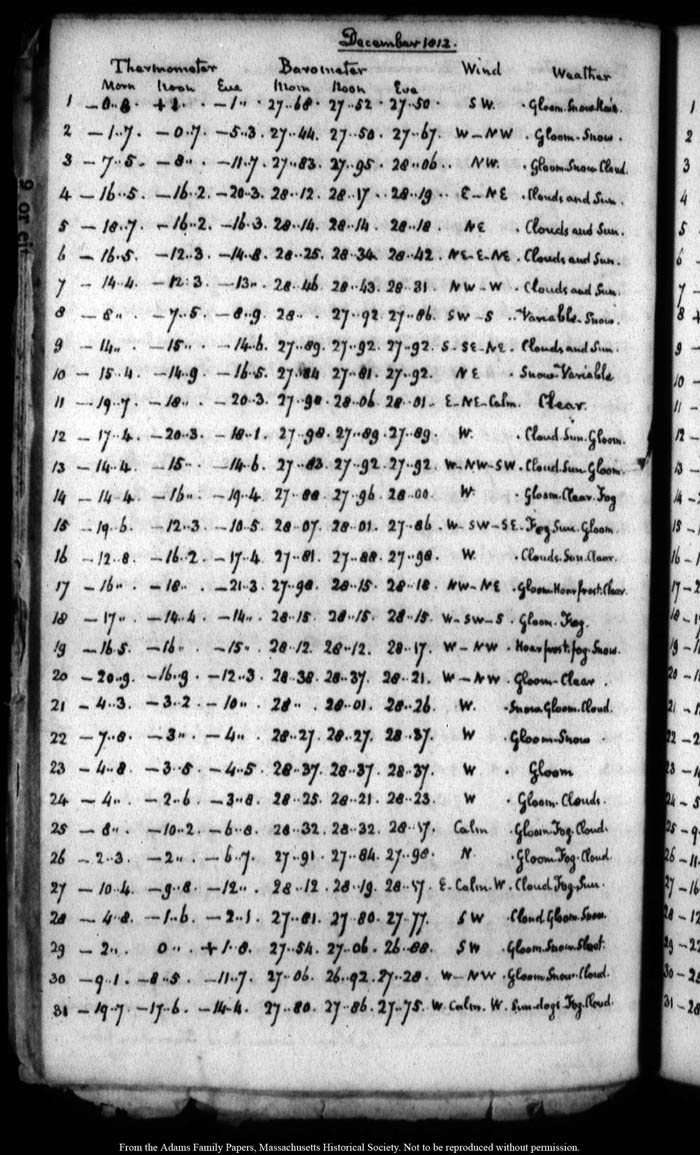 December 1812.
Thermometer Barometer Wind Weather
Morn Noon Eve Morn Noon Eve
1 – 0..8 +1.. – 1.. 27..68 27..52 27..50 SW. Gloom. Snow.
2 – 1..7 – 0..7 – 5..3 27..44 27..50 27..67 W–NW Gloom. Snow.
3 – 7..5 – 8.. – 11..7 27..83 27..95 28..06 NW. Gloom Snow Cloud.
4 – 16..5 – 16..2 – 20..3 28..12 28..17 28..19 E–NE Clouds and Sun.
5 – 18..7 – 16..2 – 16..3 28..14 28..14 28..18 NE Clouds and Sun.
6 – 16..5 – 12..3 – 14..8 28..25 28..34 28..42 NE–E–NE Clouds and Sun.
7 – 14..4 – 12..3 – 13.. 28..46 28..43 28..31 NW–W Clouds and Sun.
8 – 8.. – 7..5 – 8..9 28.. 27..92 27..86 SW–S Variable. Snow.
9 – 14.. – 15.. – 14..6 27..89 27..92 27..92 S–SE–NE Clouds and Sun.
10 – 15..4 – 14..9 – 16..5 27..84 27..81 27..92 NE Snow Variable
11 – 19..7 – 18.. – 20..3 27..98 28..06 28..01 E–NE–Calm. Clear.
12 – 17..4 – 20..3 – 18..1 27..98 27..89 27..89 W. Cloud. Sun. Gloom.
13 – 14..4 – 15.. – 14..6 27..83 27..92 27..92 W–NW–SW. Cloud. Sun Gloom.
14 – 14..4 – 16.. – 19..4 27..88 27..96 28..00 W. Gloom. Clear. Fog
15 – 19..6 – 12..3 – 10..5 28..07 28..01 27..86 W–SW–SE. Fog Sun. Gloom.
16 – 12..8 – 16..2 – 17..4 27..81 27..88 27..98 W. Clouds. Sun. Clear.
17 – 16.. – 18.. – 21..3 27..98 28..15 28..18 NW–NE Gloom. Hoar frost. Clear.
18 – 17.. – 14..4 – 14.. 28..15 28..15 28..15 W–SW–S Gloom. Fog.
19 – 16..5 – 16.. – 15.. 28..12 28..12 28..17 W–NW Hoar frost. fog. Snow.
20 – 20..9 – 16..9 – 12..3 28..38 28..37 28..21 W–NW Gloom–Clear.
21 – 4..3 – 3..2 – 10.. 28.. 28..01 28..26 W. Snow Gloom. Cloud.
22 – 7..8 – 3.. – 4.. 28..27 28..27 28..37 W Gloom–Snow
23 – 4..8 – 3..5 – 4..5 28..37 28..37 28..37 W Gloom
24 – 4.. – 2..6 – 3..8 28..25 28..21 28..23 W Gloom. Clouds.
25 – 8.. – 10..2 – 6..8 28..32 28..32 28..17 Calm Gloom Fog. Cloud.
26 – 2..3 – 2.. – 6..7 27..91 27..84 27..98 N. Gloom. Fog. Cloud
27 – 10..4 – 9..8 – 12.. 28..12 28..19 28..17 E. Calm. W. Cloud Fog. Sun.
28 – 4..8 – 1..6 – 2..1 27..81 27..80 27..77 SW Cloud Gloom. Snow.
29 – 2.. 0.. +1..8 27..54 27..06 26..88 SW Gloom. Snow Sleet.
30 – 9..1 – 8..5 – 11..7 27..06 26..92 27..28 W–NW Gloom Snow. Cloud.
31 – 19..7 – 17..6 – 14..4 27..80 27..86 27..75 W. Calm. W. Sun dogs Fog. Cloud.
From the Adams Family Papers, Massachusetts Historical Society. Not to be reproduced without permission.